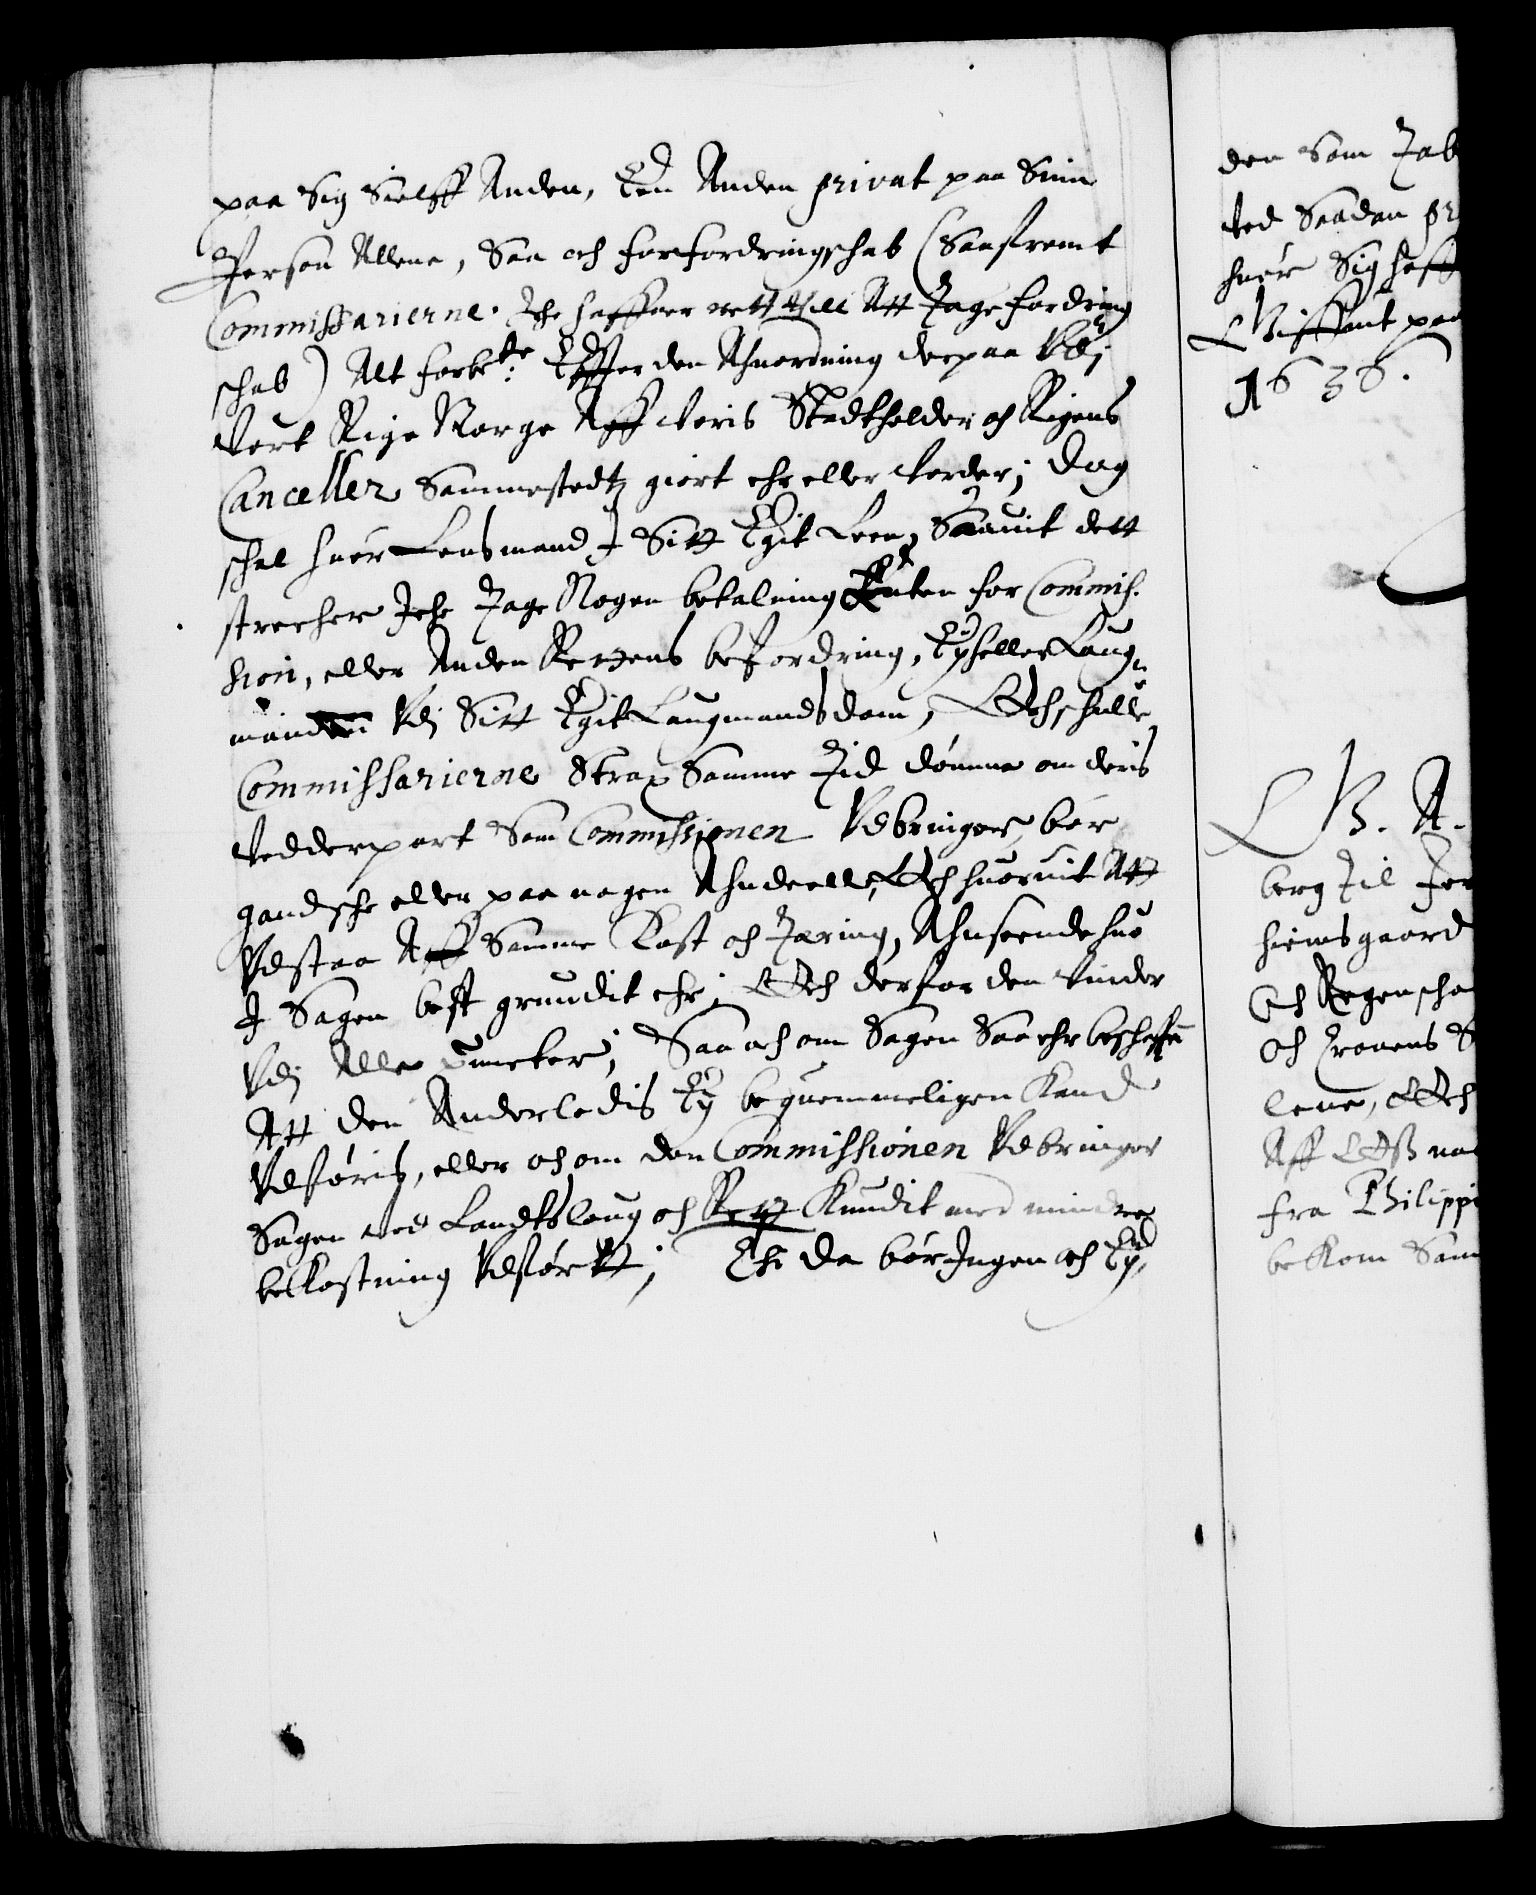 paa Sig Sielff Anden, Een Anden privat paa Sinn
Person Allene, Saa och forfordringschab (Saafremt
Commissarierne. Iche haffuer rett till Att Tage fordring
schab) Alt forbete: Effter den Ahnordning derpaa Vdj
Vort Rige Norge Aff Voris Stadtholder och Rigens
Canceller Sammestedtz giort ehr eller Vorder; Dog
schal huer Lensmand I Sitt Egit Leen, Saauit dett
strecher Iche Tage Nogen betalning Enten for Commis-
sion, eller Anden Rettens befordring, Ey heller Laug-
mand Vdj Sitt Egit Laugmandsdom, Och schulle
Commissarierne Strax Samme Tid dømme om deris
Vedderpart Som Commissionen Vdbringer, bør
gandsche eller paa nogen Ahndeell, Och huoruit Att
Vdstaa Aff Samme Kost och Tæring, Ahnseende huo
I Sagen best grundit ehr; Och derfor den Vinder
Vdj Alle Puncter; Saa och om Sagen Saa ehr beschaffen
Att den Anderledis Ey bequemmeligen Kand
Vdføris, eller och om den Commissionen Vdbringer
Sagen ved Landtzloug och Rett Kundit med mindre
bekostning Vdførtt; Thi da bør Ingen och Ey,
den Som
Ved Saadan
huer Sig
Giffuit paa
1636.
N. A.
berg Til
hiemsgaard
och
och Cronens
lene, Och
Aff Oss
fra Philippi
bekom Sam